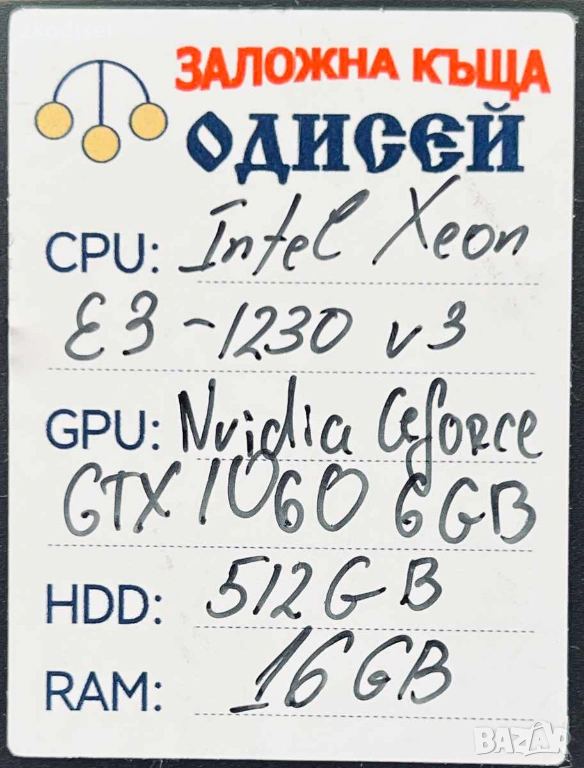 ЗАЛОЖНА КЪЩА
ОДИСЕЙ
CPU: Intel Xeon
E3-1230 v3
GPU: Nvidia Geforce
GTX 1060 6GB
HDD: 512GB
RAM: 16GB
BAZAR